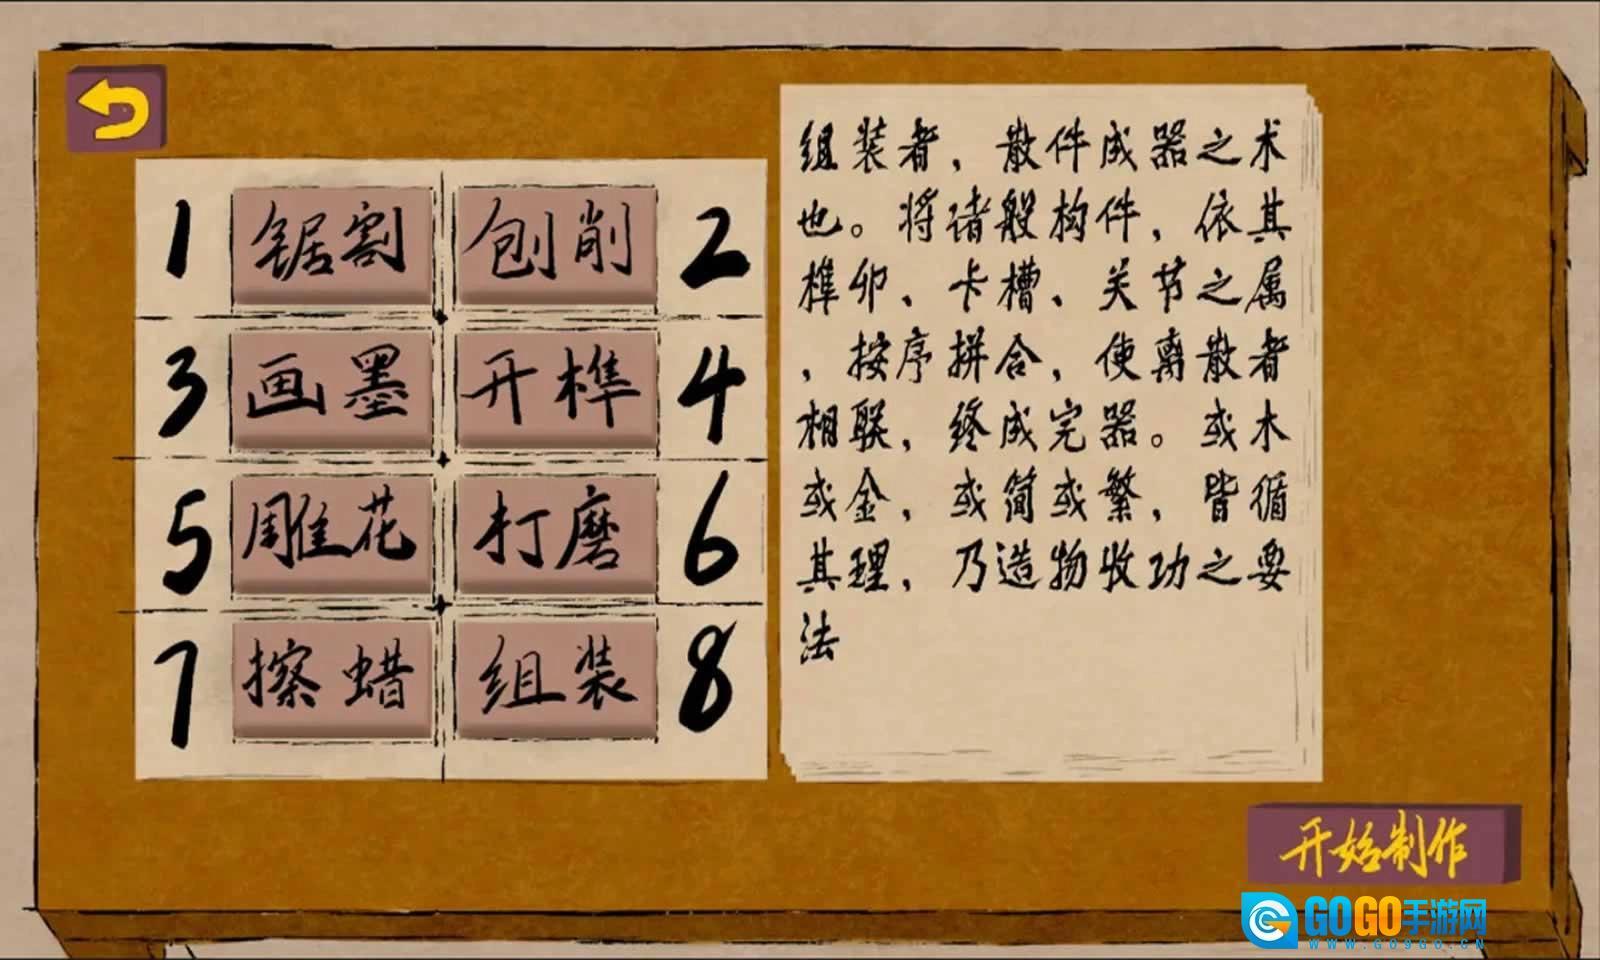 1 锯割 刨削 2
3 画墨 开榫 4
5 雕花 打磨 6
7 擦蜡 组装 8
组装者，散件成器之术
也。将诸般构件，依其
榫卯、卡槽、关节之属
，按序拼合，使离散者
相联，终成完器。或木
或金，或简或繁，皆循
其理，乃造物收功之要
法
开始制作
GOGO手游网
WWW.GO9GO.CN